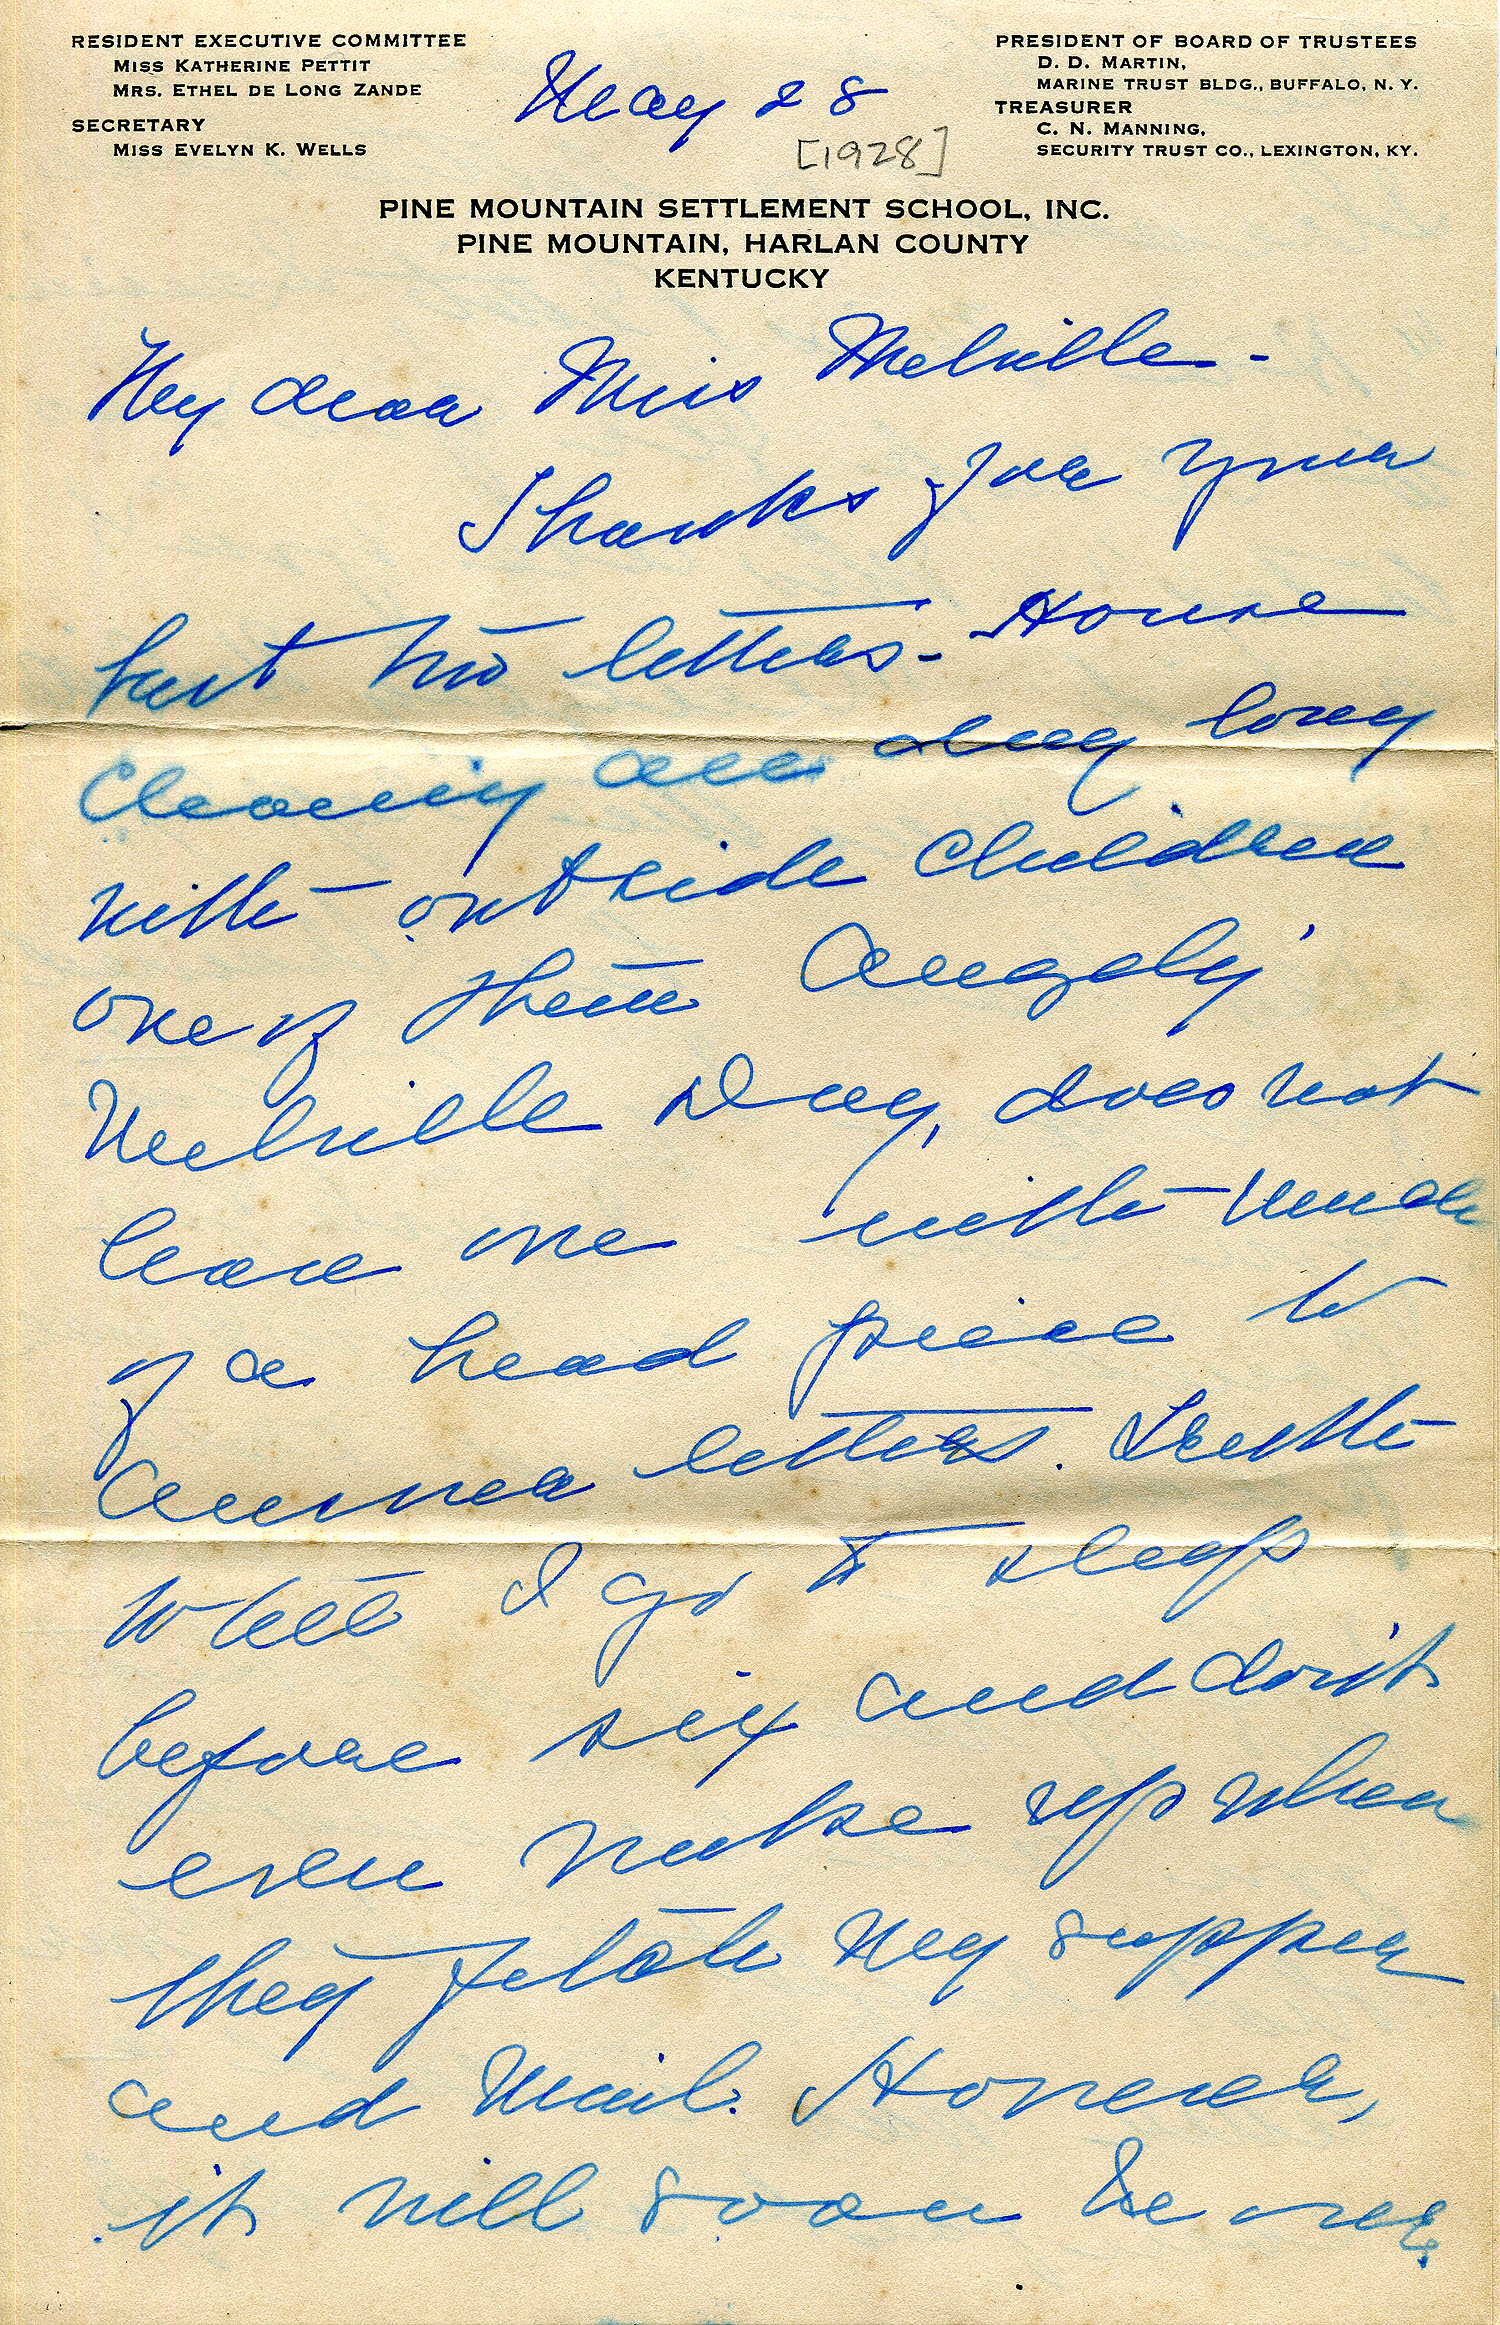 RESIDENT EXECUTIVE COMMITTEE
MISS KATHERINE PETTIT
MRS. ETHEL DE LONG ZANDE
SECRETARY
MISS EVELYN K. WELLS
PRESIDENT OF BOARD OF TRUSTEES
D. D. MARTIN,
MARINE TRUST BLDG., BUFFALO, N. Y.
TREASURER
C. N. MANNING,
SECURITY TRUST CO., LEXINGTON, KY.
May 28
[1928]
PINE MOUNTAIN SETTLEMENT SCHOOL, INC.
PINE MOUNTAIN, HARLAN COUNTY
KENTUCKY
My dear Miss Melville -
Thanks for your
last two letters - House
Cleaning all day long
with outside children
one of them
Melville Day, does not
leave one with much
of a head piece to
answer letters. Truth
to tell I go to sleep
before six and don't
even wake up when
they fetch my supper
and mail. However,
it will soon be over